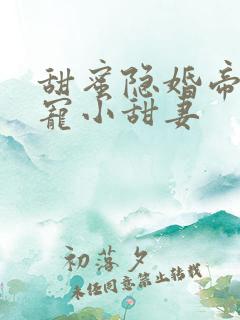 甜蜜隐婚帝
宠小甜妻
初落夕
未经同意禁止转载